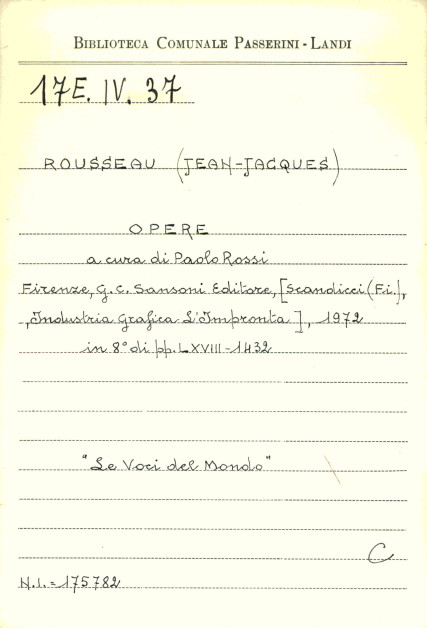 BIBLIOTECA COMUNALE PASSERINI-LANDI
17E. IV. 37
ROUSSEAU (JEAN-JACQUES)
OPERE
a cura di Paolo Rossi
Firenze, G. C. Sansoni Editore, [Scandicci (F.i.],
,Industria Grafica L'Impronta ], 1972
in 8° di pp. LXVIII-1432
"Le Voci del Mondo"
C
N.I.=175782